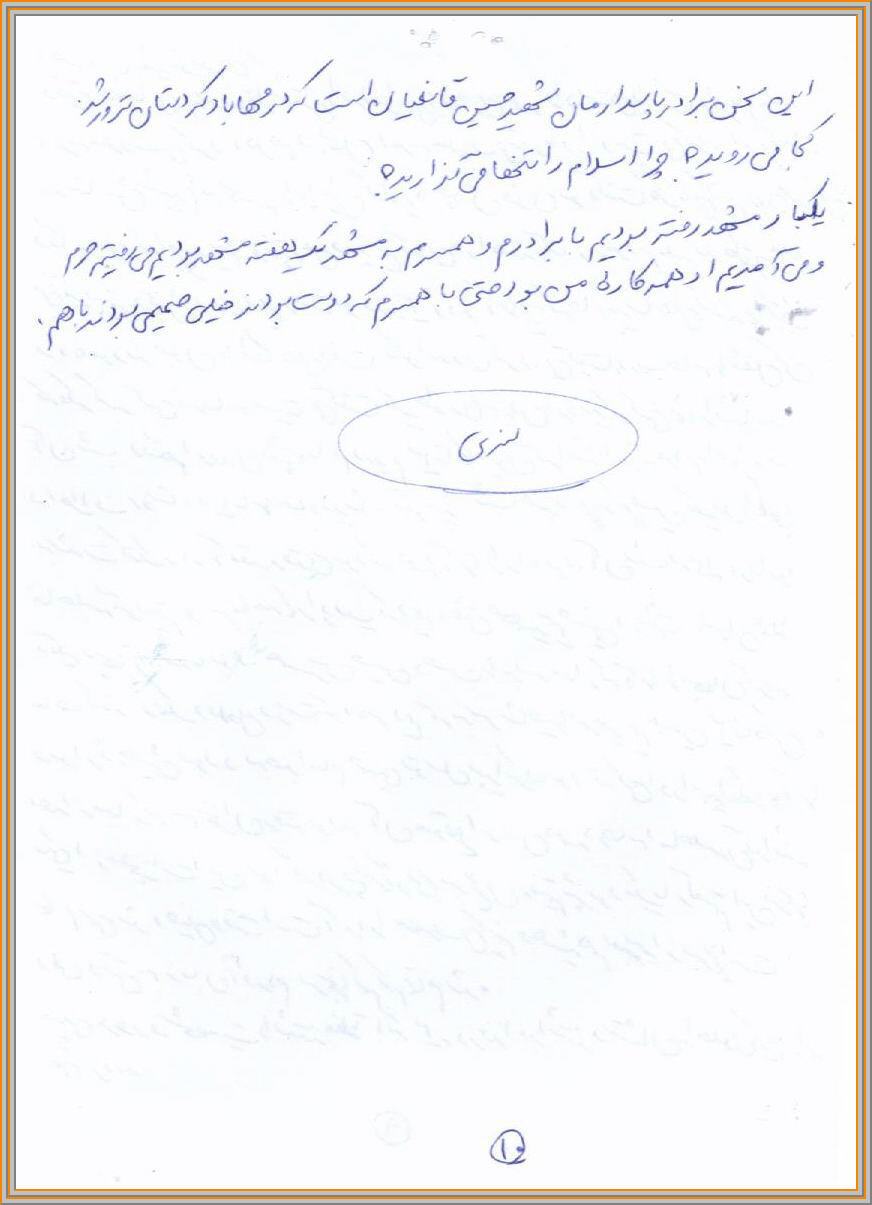 این سخن برادر پاسدارمان شهید حسین قانعیان است که در مهاباد کردستان ترور شد.
کجا می روید؟ چرا اسلام را تنها می گذارید؟
یکبار مشهد رفته بودیم با برادرم و همسرم به مشهد یک هفته مشهد بودیم می رفتیم حرم
و می آمدیم او همه کاره من بود حتی با همسرم که دوست بودند خیلی صمیمی بودند با هم.
۱۰